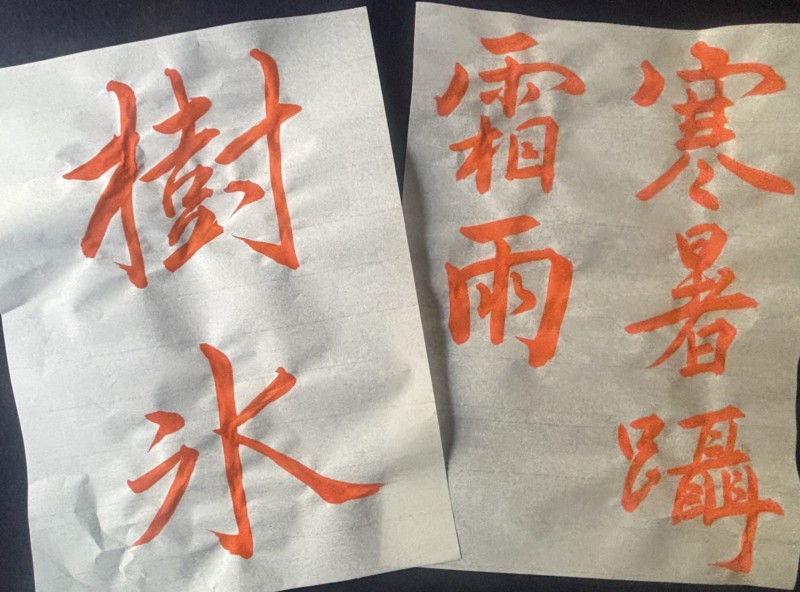 樹氷
寒暑躡
霜雨